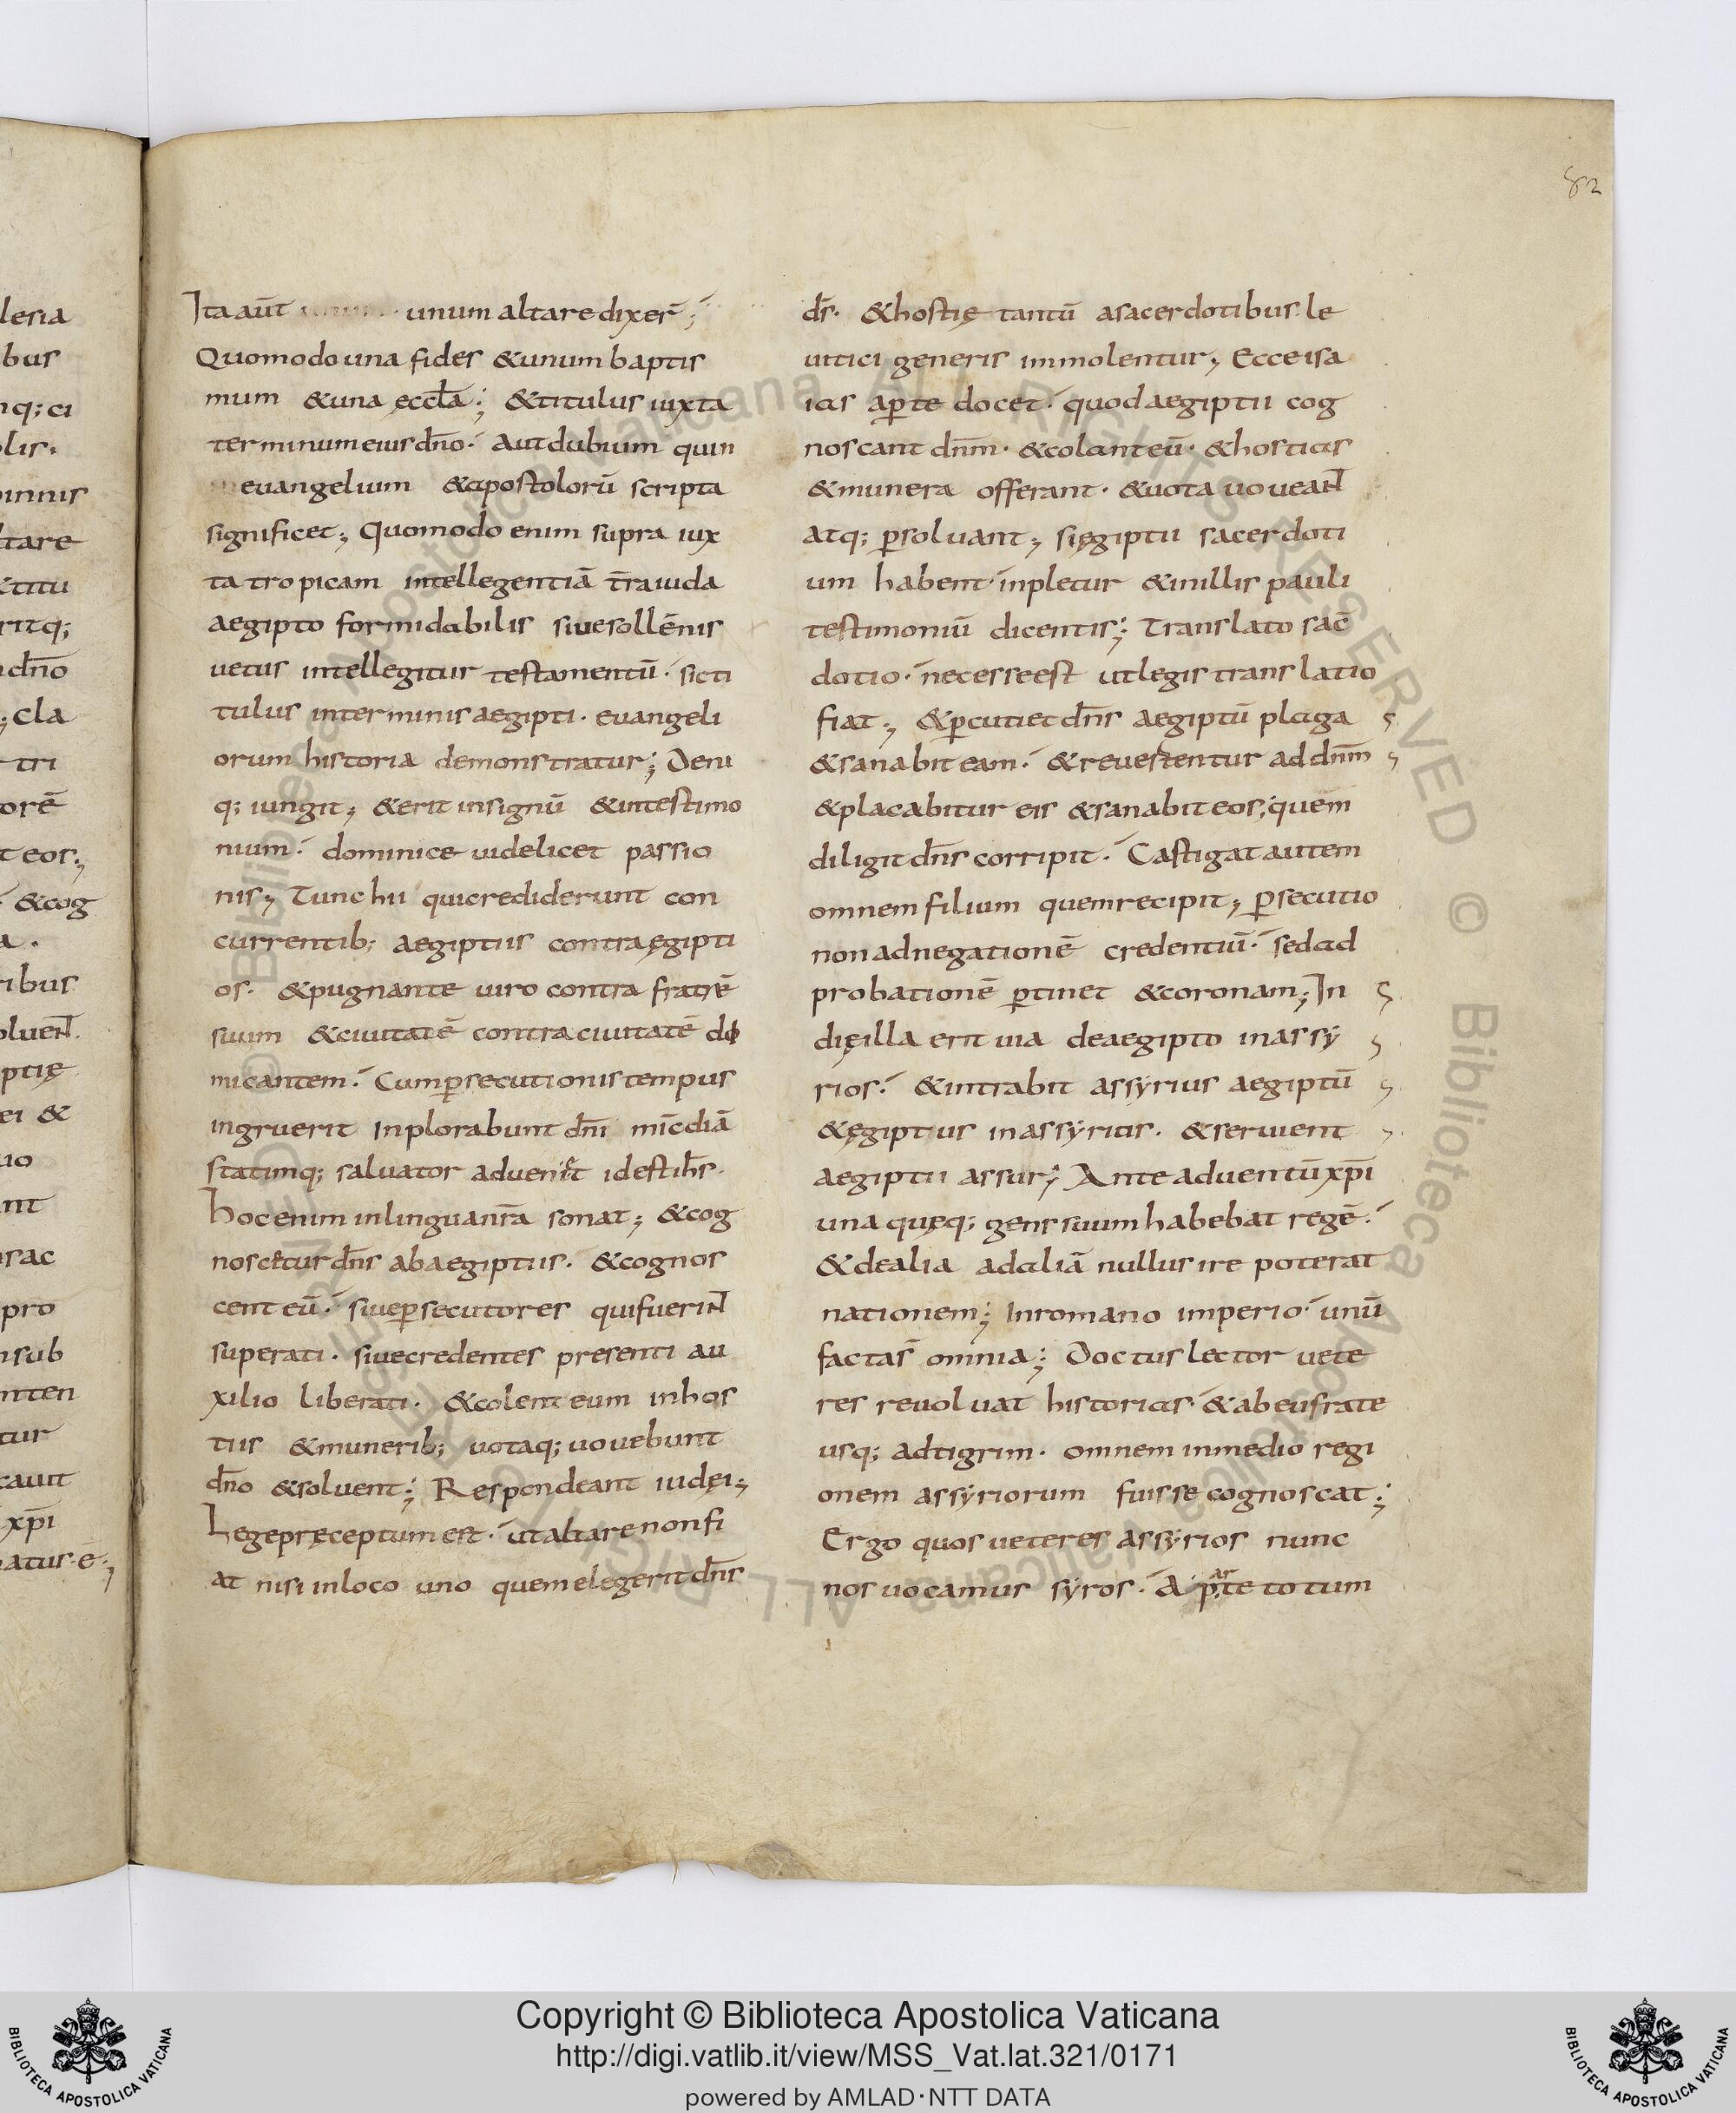 lesia
bus
nq; ci
olis.
omnis
ltare
&titu
ritq;
dn̄o
; cla
tri
orē
t eos;
&cog
a.
ribus
oluent
ptię
ei &
tio
nt
sac
pro
nsub
nten
tur
cauit
xp̄i
natus ē;
82
Ita aūt unum altare dixeř;
Quomodo una fides &unum baptis
mum &una ęccła; &titulus iuxta
terminum eius dn̄o. Aut dubium quin
euangelium &apostolorū scripta
significet; Quomodo enim supra iux
ta tropicam intellegentiā t̄ra iuda
aegipto formidabilis siue sollēnis
uetus intellegitur testamentū. sic ti
tulus in terminis aegipti. euangeli
orum historia demonstratur; Deni
q; iungit; &erit in signū &in testimo
nium. dominice uidelicet passio
nis; Tunc hii qui crediderunt con
currentib; aegiptiis contra ęgipti
os. &pugnante uiro contra fratrē
suum &ciuitatē contra ciuitatē di
micantem. Cum p̱secutionis tempus
ingruerit inplorabunt dn̄i mīcdiā
statimq; saluator adueniet id est ih̄s.
hoc enim in lingua nr̄a sonat; &cog
noscetur dn̄s ab aegiptiis. &cognos
cent eū. siue p̱secutores qui fuerint
superati. siue credentes presenti au
xilio liberati. &colent eum in hos
tiis &munerib; uotaq; uouebunt
dn̄o &soluent; Respondeant iudęi;
Lege pręceptum est. ut altare non fi
at nisi in loco uno quem elegerit dn̄s
d̄s. &hostię tantū a sacerdotibus le
uitici generis immolentur; Ecce isa
ias ap̱te docet. quod aegiptii cog
noscant dn̄m. &colant eū. &hostias
&munera offerant. &uota uoueant
atq; p̱soluant; si ęgiptii sacerdoti
um habent inpletur &in illis pauli
testimoniū dicentis; Translato sac̄
dotio. necesse est ut legis translatio
fiat; &p̱cutiet dn̄s aegiptū plaga
&sanabit eam. &reuertentur ad dn̄m
&placabitur eis &sanabit eos; quem
diligit dn̄s corripit. Castigat autem
omnem filium quem recipit; p̱secutio
non ad negationē credentiū. sed ad
probationē p̱tinet &coronam; In
dię illa erit uia de aegipto in assy
rios. &intrabit assyrius aegiptū
&ęgiptius in assyriis. &seruient
aegiptii assur; Ante aduentū xp̄i
una quęq; gens suum habebat regē.
&de alia ad aliā nullus ire poterat
nationem; In romano imperio. unū
facta s̄ omnia; Doctus lector uete
res reuoluat historias &ab eufrate
usq; ad tigrim. omnem in medio regi
onem assyriorum fuisse cognoscat;
Ergo quos ueteres assyrios nunc
nos uocamus syros. A parte totum
Copyright © Biblioteca Apostolica Vaticana
http://digi.vatlib.it/view/MSS_Vat.lat.321/0171
powered by AMLAD·NTT DATA
BIBLIOTECA APOSTOLICA VATICANA
BIBLIOTECA APOSTOLICA VATICANA